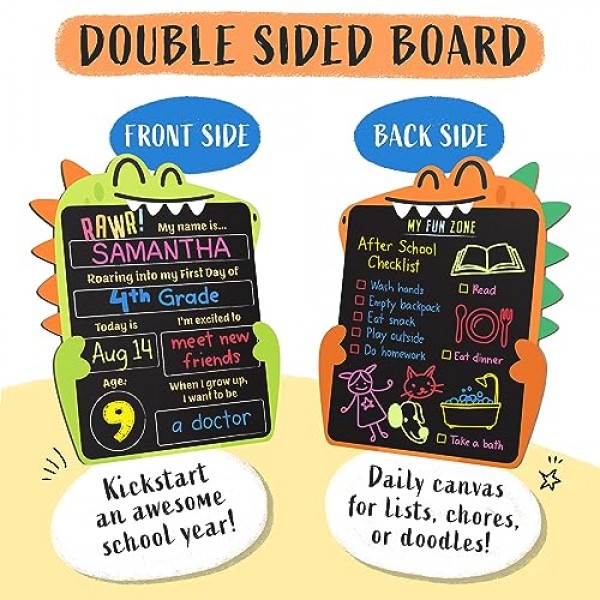 DOUBLE SIDED BOARD
FRONT SIDE
RAWR! My name is...
SAMANTHA
Roaring into my First Day of
4th Grade
Today is
Aug 14
I'm excited to
meet new
friends
Age:
9
When I grow up,
I want to be
a doctor
Kickstart
an awesome
school year!
BACK SIDE
MY FUN ZONE
After School
Checklist
Wash hands
Empty backpack
Eat snack
Play outside
Do homework
Read
Eat dinner
Take a bath
Daily canvas
for lists, chores,
or doodles!